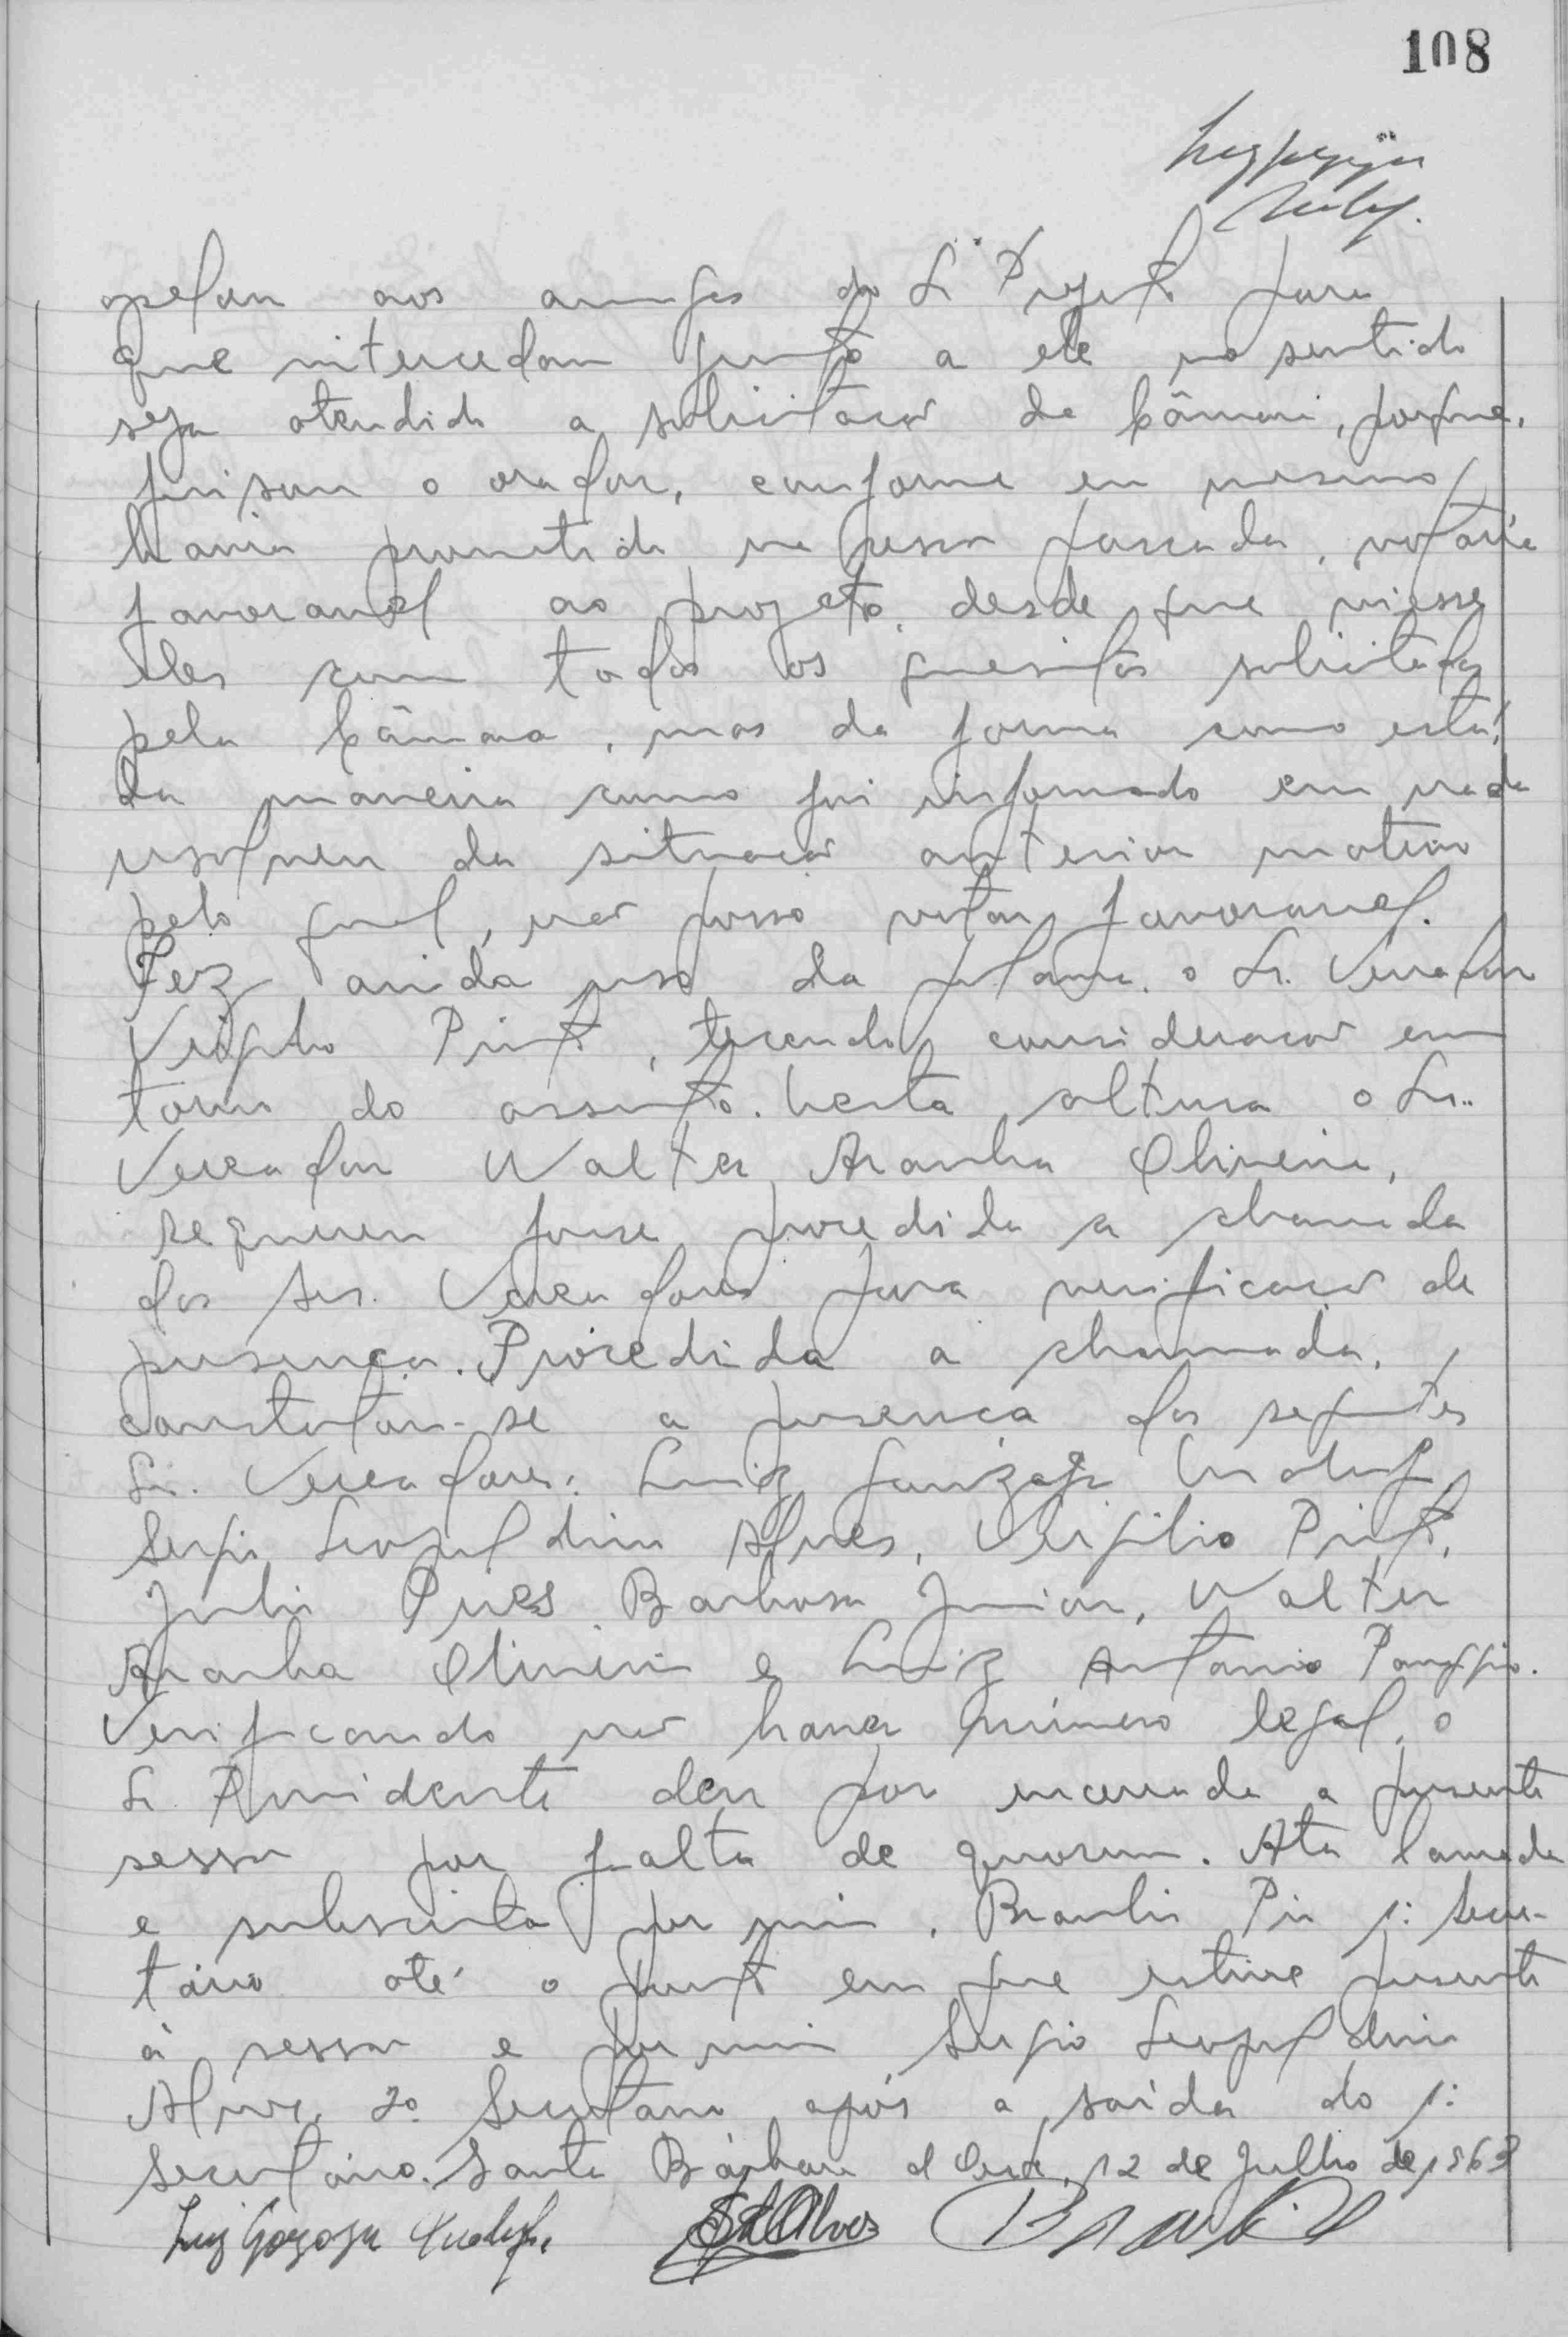 108
apelou aos amigos do Sr. Prefeito para
que intercedam junto a ele no sentido
seja atendido a solicitação da Câmara, porque,
frisou o orador, conforme eu mesmo
havia prometido na sessão passada, votaria
favoravel ao projeto, desde que viesse
eles com todos os quesitos solicitados
pela Câmara, mas da forma como está,
da maneira como foi informado em nada
resolveu da situação anterior motivo
pelo qual, não posso votar favoravel.
Fez ainda uso da palavra o Sr. Vereador
Virgilio Pinto, tecendo consideração em
torno do assunto. Nesta altura o Sr.
Vereador Walter Aranha Oliveira,
requereu fosse procedida a chamada
dos Srs. Vereadores para verificação de
presença. Procedida a chamada,
constatou-se a presença dos seguintes
Sr. Vereadores: Luiz Gonzaga
Sergio Leopoldino Alves, Virgilio Pinto,
Julio Pires Barbosa Junior, Walter
Aranha Oliveira e Luiz Antonio
Verificando não haver número legal, o
Sr. Presidente deu por encerrada a presente
sessão por falta de quorum. Ata lavrada
e subscrita por mim, Braulio Pio 1º Secre-
tário até o ponto em que estive presente
à sessão e por mim Sergio Leopoldino
Alves, 2º Secretário após a saída do 1º
Secretário. Santa Bárbara d'Oeste, 12 de Julho de 1963
Luiz Gonzaga
Alves